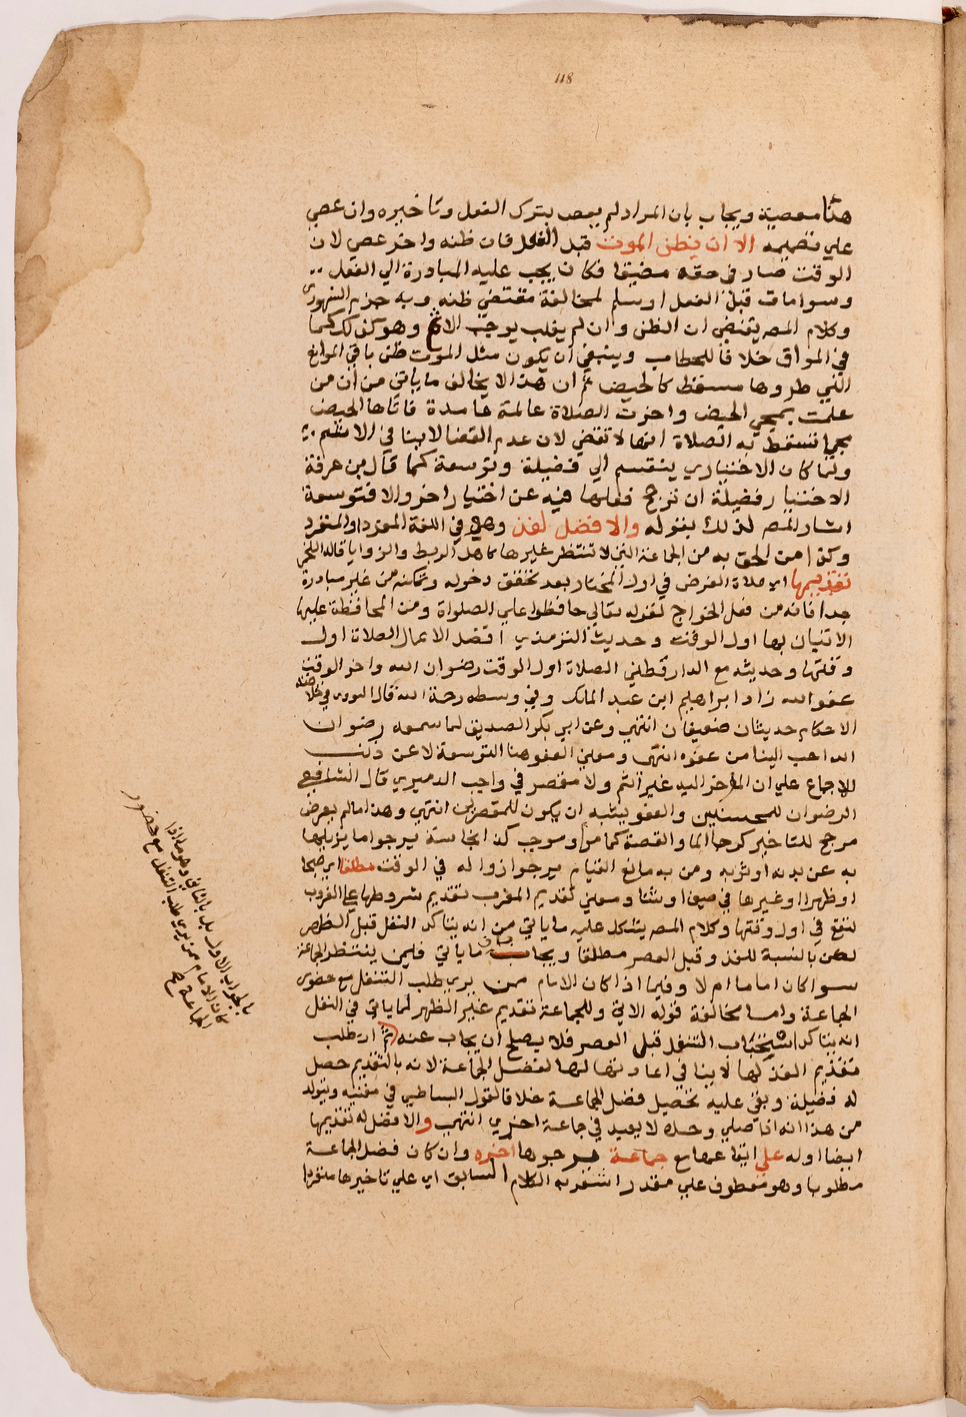 118
هنا معصية ويجاب بان المراد لم يعص بترك الفعل وتاخيره وان عصي
علي تضييعه الا ان يظن الموت قبل الفعل فان ظنه واخر عصي لان
الوقت صار في حقه مضيقا فكان يجب عليه المبادرة الي الفعل
وسوا مات قبل الفعل او سلم لمخالفة مقتضي ظنه وبه جزم السنهوري
وكلام المص يقتضي ان الظن وان لم يغلب يوجب الاثم وهو كذلك كما
في المواق خلافا للحطاب وينبغي ان يكون مثل الموت ظن باقي الموانع
التي طروها مسقط كالحيض ثم ان هذا لا يخالف ما ياتي من ان من
علمت بمجي الحيض واخرت الصلاة عالمة عامدة فاتاها الحيض
تسقط به الصلاة انها لا تقضي لان عدم القضا لا ينافي الاثم
ولما كان الاختياري ينقسم الي فضيلة وتوسعة كما قال ابن عرفة
الاختيار فضيلة ان ترجح فعلها فيه عن اختيار اخر والا فتوسعة
اشار المص لذلك بقوله والافضل لفذ وهو في اللغة المفرد او المنفرد
وكذا من الحق به من الجماعة التي لا تنتظر غيرها كاهل الربط والزوايا قاله اللخمي
تقديمها اي صلاة الفرض في اول المختار بعد تحقق دخوله وتمكنه من غير مبادرة
جدا فانه من فعل الخوارج لقوله تعالي حافظوا علي الصلواة ومن المحافظة عليها
الاتيان بها اول الوقت وحديث الترمذي افضل الاعمال الصلاة اول
وقتها وحديثه مع الدارقطني الصلاة اول الوقت رضوان الله واخر الوقت
عفو الله زاد ابراهيم ابن عبد الملك وفي وسطه رحمة الله قال النووي في خلاصة
الاحكام حديثان ضعيفان انتهي وعن ابي بكر الصديق لما سمعه رضوان
الله احب الينا من عفوه انتهي ومعني العفو هنا التوسعة لا عن ذنب
للاجماع علي ان المؤخر اليه غير اثم ولا مقصر في واجب الدميري قال الشافعي
الرضوان للمحسنين والعفو يشبه ان يكون للمقصرين انتهي وهذا ما لم يعرض
مرجح للتاخير كرجا الما والقصة كما مر وموجب كذي نجاسة يرجوا ما يزيلها
به عن بدنه او ثوبه ومن به مانع القيام يرجوا زواله في الوقت مطلقا اي صبحا
او ظهرا او غيرها في صيف او شتا ومعني تقديم المغرب تقديم شروطها علي الغروب
لتقع في اول وقتها وكلام المص يشكل عليه ما ياتي من انه يتاكد النفل قبل الظهر
لكن بالنسبة للفذ وقبل العصر مطلقا ويجاب ما ياتي فلمن ينتظر الجماعة
سوا كان اماما ام لا وفيما اذا كان الامام ممن يري طلب التنفل مع حضور
الجماعة واما مخالفة قوله الاتي وللجماعة تقديم غير الظهر لما ياتي في النفل
انه يتاكد استحباب التنفل قبل العصر فلا يصلح ان يجاب عنه ثم ان طلب
تقديم الفذ لها لا ينافي اعادتها لها لفضل الجماعة لانه بالتقديم حصل
له فضيلة وبقي عليه تحصيل فضل الجماعة خلافا لقول البساطي في مغنيه ويتولد
من هذا انه اذا صلي وحده لا يعيد في جماعة اخري انتهي والافضل له تقديمها
ايضا اوله علي ايقاعها مع جماعة يرجوها اخره وان كان فضل الجماعة
مطلوبا وهو معطوف علي مقدر اشعر به الكلام السابق اي علي تاخيرها منفردا
بالجواب الاول بل بالثاني وهو ما اذا
كان الامام ممن يري طلب التنفل مع حضور
الجماعة